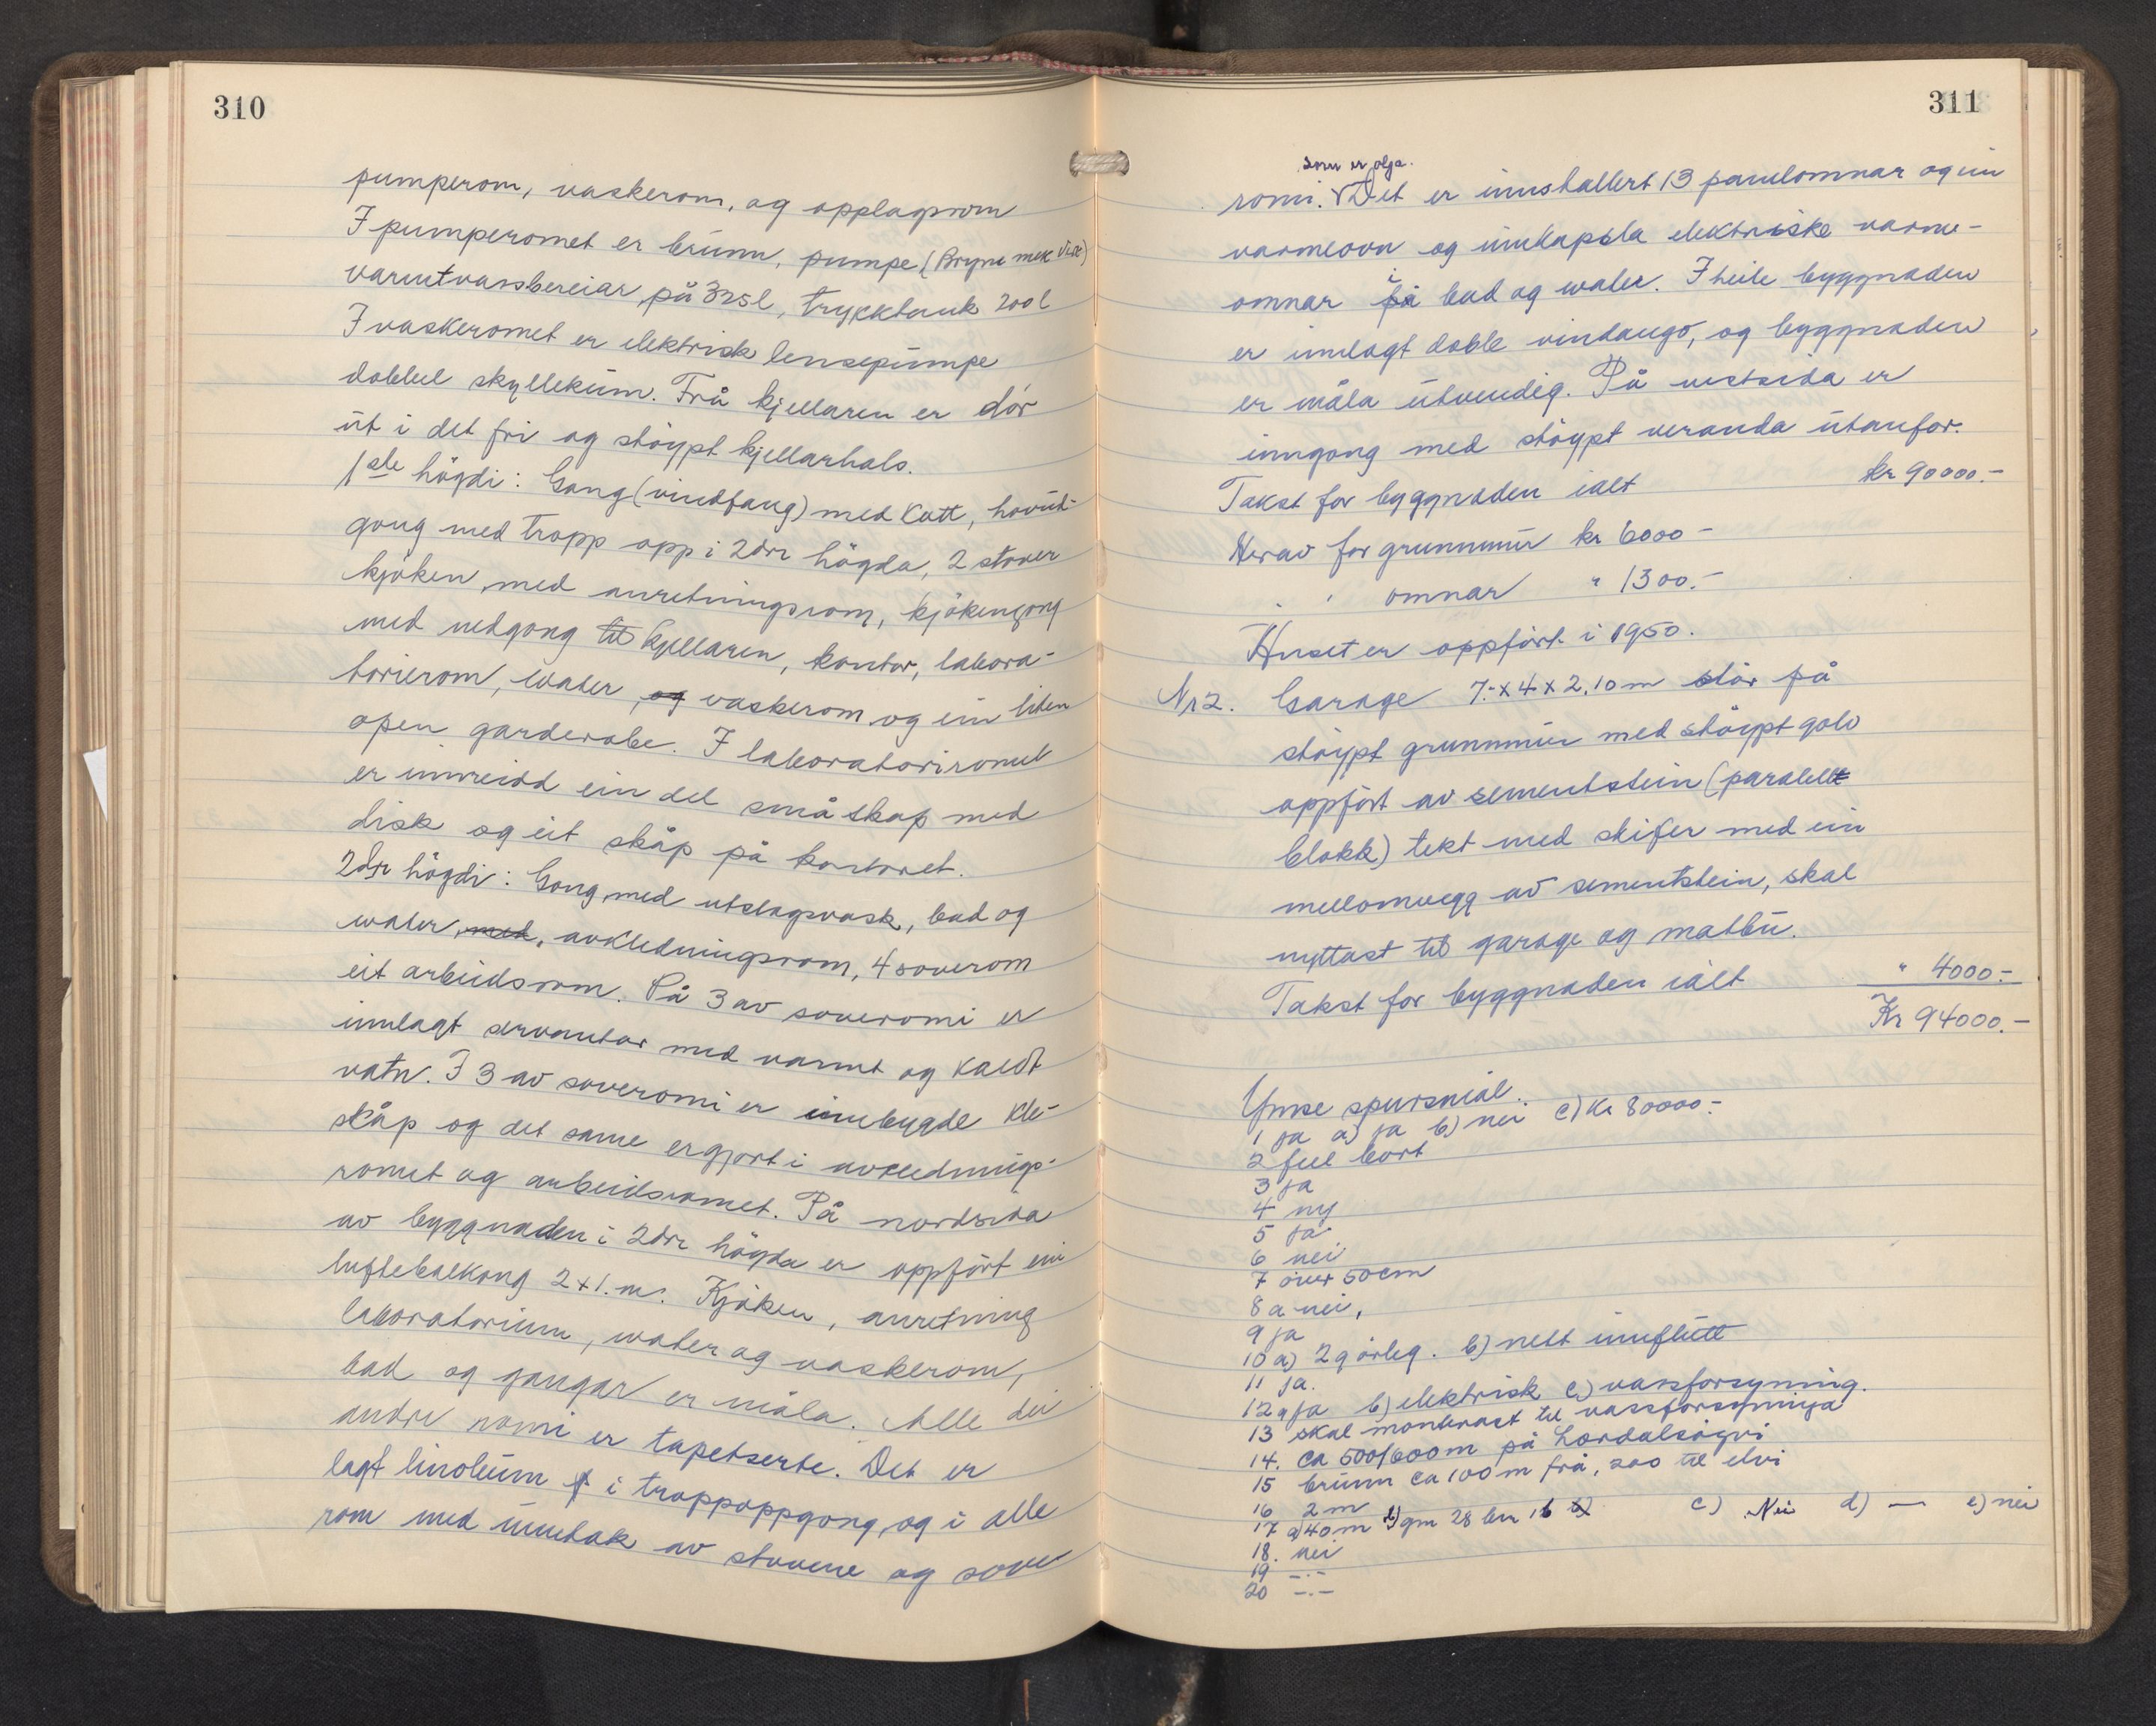 310
pumperom, vaskerom, og opplagsrom
I pumperomet er brunn, pumpe (Bryne mek
varmtvassbereiar på 325 l, trykktank 200 l
I vaskeromet er elektrisk lensepumpe
dobbel skyllekum. Frå kjellaren er dör
ut i det fri og stöypt kjellarhals.
1ste högdi: Gong (vindfang) med kott, hovud-
gong med tropp opp i 2dre högda, 2 stover
kjöken med anretningsrom, kjökengong
med nedgong til kjellaren, kontor, labora-
torierom, water, og vaskerom og ein liten
open garderobe. I laboratorieromet
er innreidd ein del småskap med
disk og eit skåp på kontoret.
2dre högdi: Gong med utslagsvask, bad og
water, med, avkledningsrom, 4 soverom
eit arbeidsrom. På 3 av soveromi er
innlagt servantar med varmt og kaldt
vatn. I 3 av soveromi er innbygde kle-
skåp og det same er gjort i avklednings-
romet og arbeidsromet. På nordsida
av byggnaden i 2dre högda er oppfört ein
luftebalkong 2 x 1. m. Kjöken, anretning
laboratorium, water og vaskerom,
bad og gangar er måla. Alle dei
andre romi er tapetserte. Det er
lagt linoleum i troppoppgong, og i alle
rom med unntak av stovene og sove
311
som er olja.
romi. Det er innstallert 13 panelomnar og ein
varmeovn og innkapsla elektriske varme-
omnar på i bad og water. I heile byggnaden
er innlagt doble vindaugo, og byggnaden
er måla utvendig. På vestsida er
inngong med stöypt veranda utanfor.
Takst for byggnaden ialt kr 90000.-
Herav for grunnmur kr 6000-
" " omnar " 1300.-
Huset er oppfört i 1950.
Nr 2. Garage 7.- x 4 x 2.10 m stör på
stöypt grunnmur med stöypt golv
oppfört av sementstein (paralell
blokk) tekt med skifer med ein
mellomvegg av sementstein, skal
nyttast til garage og matbu.
Takst for byggnaden ialt " 4000.-
Kr 94000.-
Ymse spursmål.
1 ja a) ja b) nei c) Kr 80000.-
2 fell bort
3 ja
4 ny
5 ja
6 nei
7 over 50 cm
8 a nei,
9 ja
10 a) 2 g årleg. b) nett innflutt
11 ja.
12 a ja b) elektrisk c) vassforsyning.
13 skal monterast til vassforsyninga
14. ca 500/600 m på Lærdalsöyri
15 brunn ca 100 m frå, 200 til elvi
16 2 m
17 a) 40 m b) gnr 28 bnr 16 c) Nei d) — e) nei
18. nei
19 -.-
20 -.-